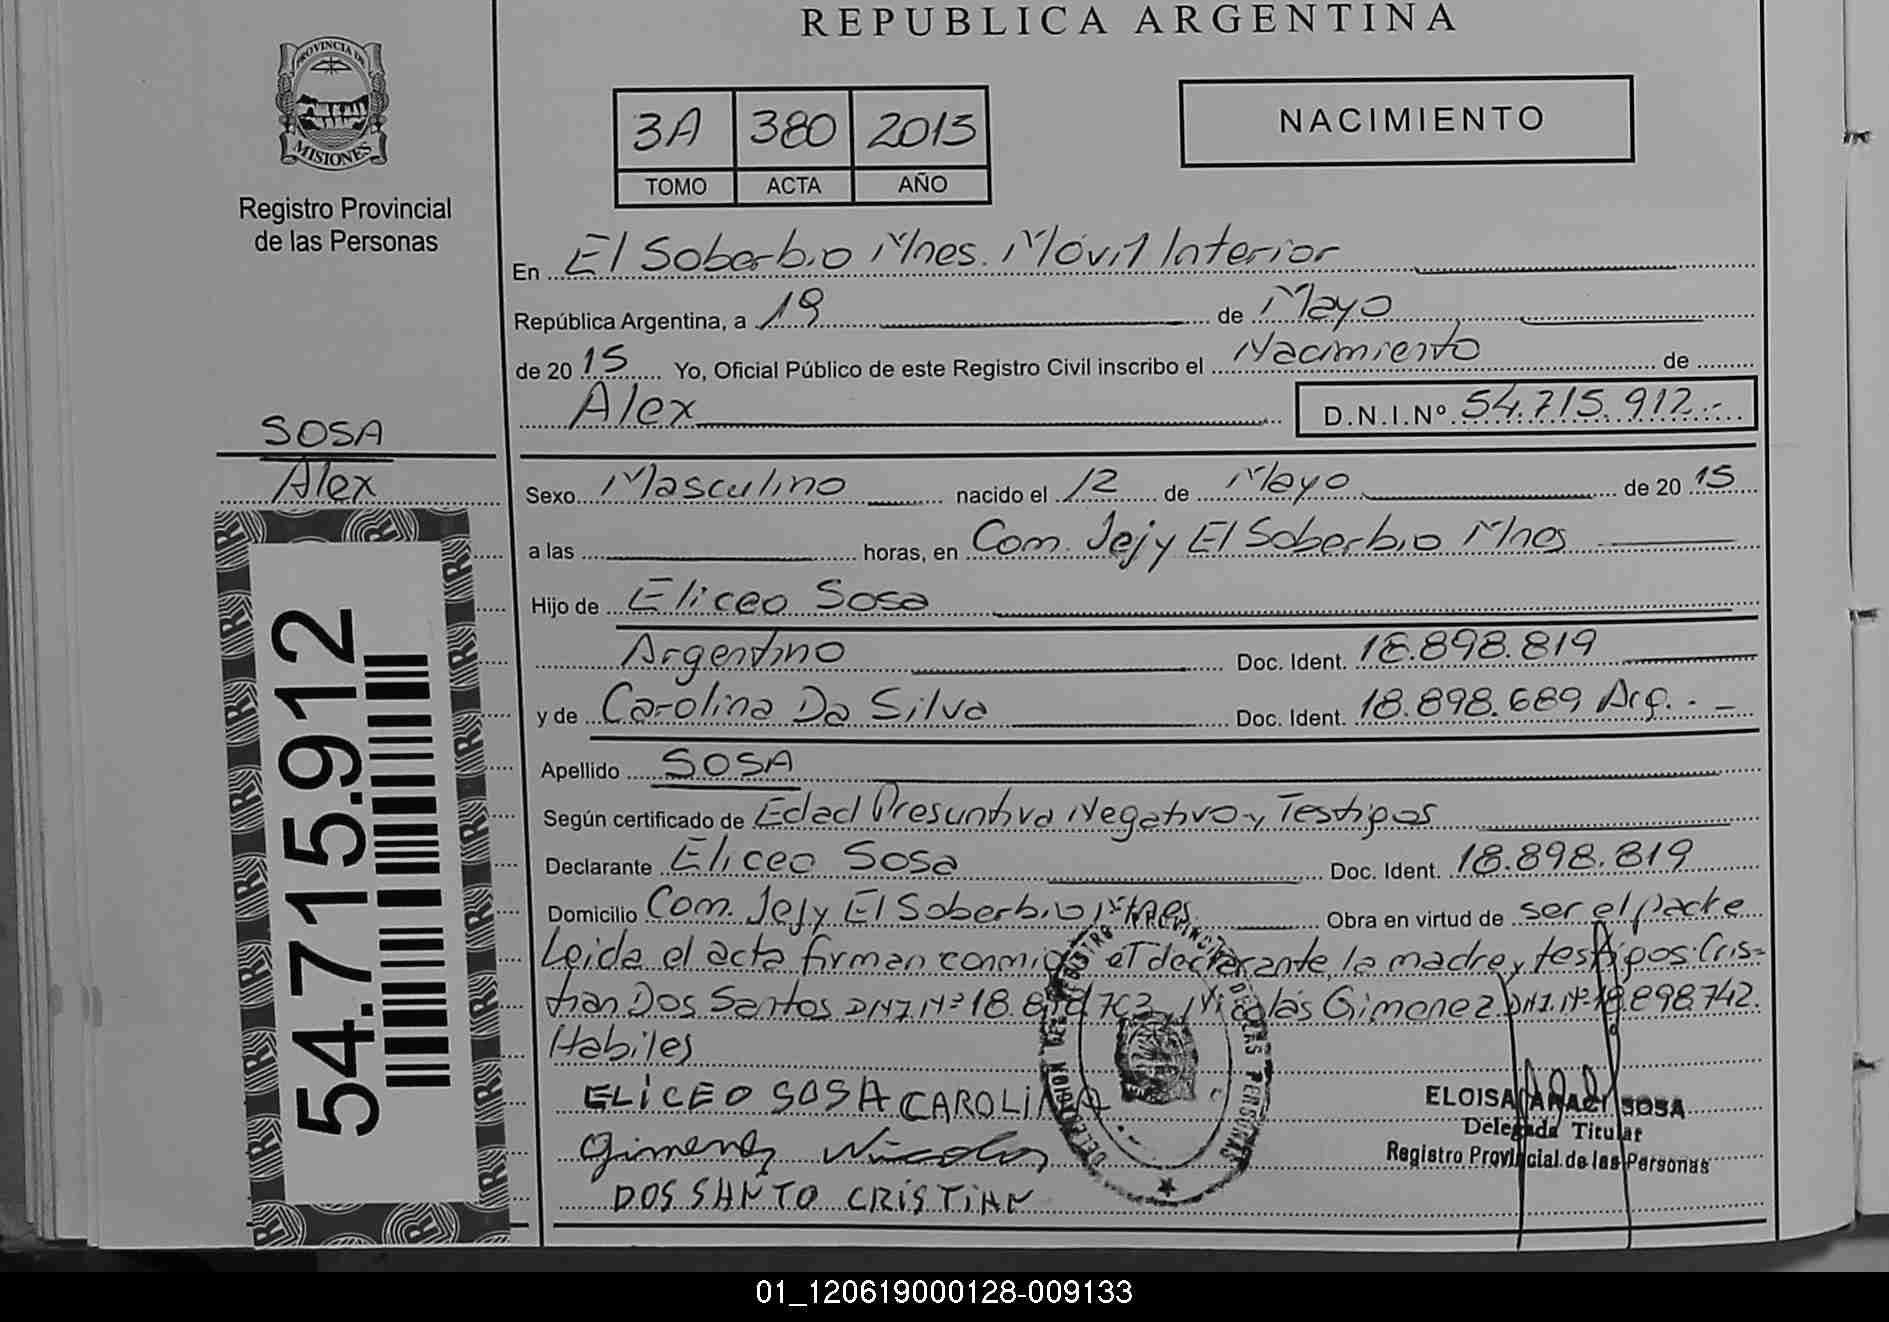 REPUBLICA ARGENTINA
PROVINCIA DE
MISIONES
Registro Provincial
de las Personas
3A 380 2015
TOMO ACTA AÑO
NACIMIENTO
En El Soberbio Mnes. Móvil Interior
República Argentina, a 19 de Mayo
de 2015 Yo, Oficial Público de este Registro Civil inscribo el Nacimiento de
Alex D.N.I.Nº 54.715.912.-
SOSA
Alex
Sexo Masculino nacido el 12 de Mayo de 2015
a las horas, en Com. Jejy El Soberbio Mnes
Hijo de Eliceo Sosa
Argentino Doc. Ident. 18.898.819
y de Carolina Da Silva Doc. Ident. 18.898.689 Arg. . -
Apellido SOSA
Según certificado de Edad Presuntiva Negativo y Testigos
Declarante Eliceo Sosa Doc. Ident. 18.898.819
Domicilio Com. Jejy El Soberbio Mnes Obra en virtud de ser el padre
Leida el acta firman conmigo el declarante, la madre y testigos: Cris-
tian Dos Santos DNI.Nº 18. Nicolás Gimenez DNI.Nº 18.898.742.
Habiles
ELICEO SOSA CAROLINA
Gimenez Nicolas
DOS SANTO CRISTIAN
DELEGACION DEL REGISTRO PROVINCIAL DE LAS PERSONAS
ELOISA ANACI SOSA
Delegada Titular
Registro Provincial de las Personas
54.715.912
01_120619000128-009133